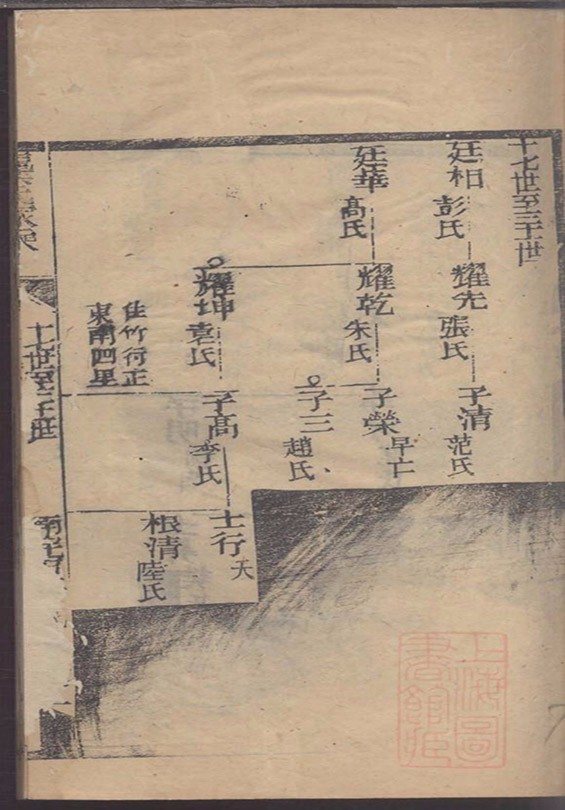 十七世至三十世
廷相
彭氏
耀先
張氏
子清
范氏
廷華
高氏
耀乾
朱氏
子榮
早亡
子三
趙氏
耀坤
袁氏
子高
李氏
士行
夭
根清
陸氏
住竹行正
東南四里
十七世至三十世
上海圖
書館藏